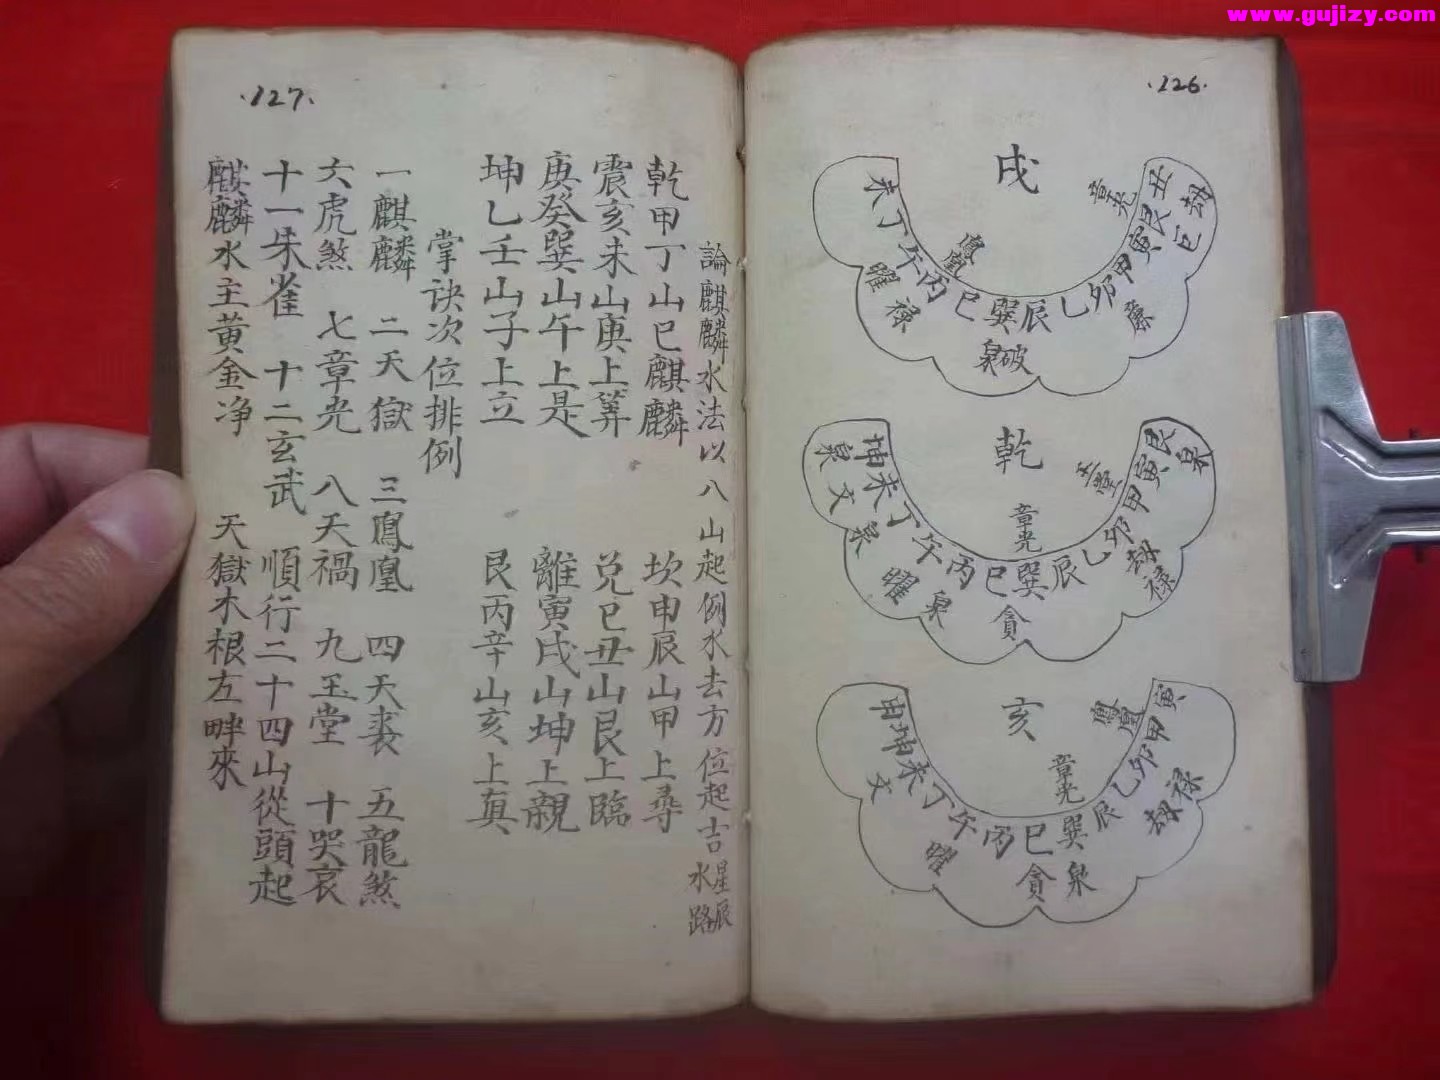 www.gujizy.com
·126·
戌
丑艮寅甲卯乙辰巽巳丙午丁未
劫
章光
廉
鳳凰
破
泉
禄
曜
乾
艮寅甲卯乙辰巽巳丙午丁未坤
泉
玉堂
劫
禄
章光
貪
泉
曜
泉
文
泉
亥
寅甲卯乙辰巽巳丙午丁未坤申
鳳凰
禄
劫
章光
泉
貪
曜
文
·127·
論麒麟水法以八山起例水去方位起吉星辰水路
乾甲丁山巳麒麟 坎申辰山甲上尋
震亥未山庚上筭 兌巳丑山艮上臨
庚癸巽山午上是 離寅戌山坤上親
坤乙壬山子上立 艮丙辛山亥上真
掌訣次位排例
一麒麟 二天獄 三鳳凰 四天喪 五龍煞
六虎煞 七章光 八天禍 九玉堂 十哭哀
十一朱雀 十二玄武 順行二十四山從頭起
麒麟水主黄金净 天獄木根左畔來